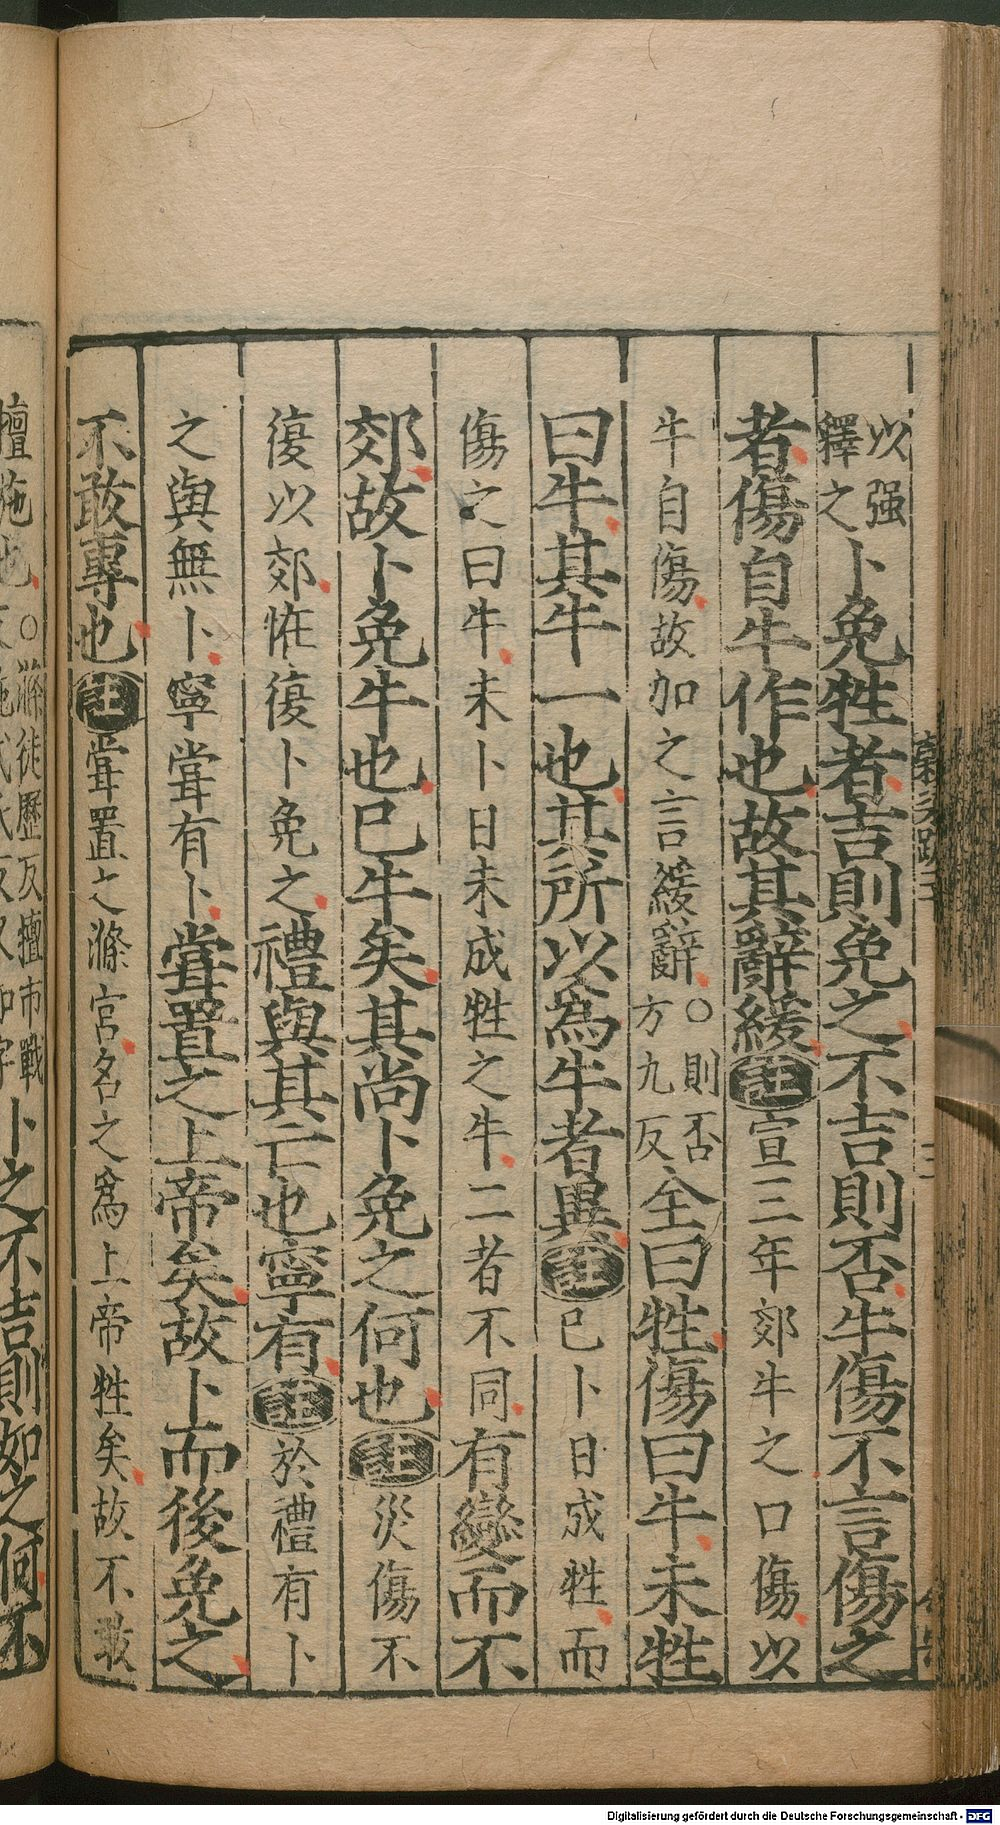 以强
釋之卜免牲者吉則免之不吉則否牛傷不言傷之
者傷自牛作也故其辭緩註宣三年郊牛之口傷以
牛自傷故加之言緩辭○則否
方九反全曰牲傷曰牛未牲
曰牛其牛一也其所以為牛者異註已卜日成牲而
傷之曰牛未卜日未成牲之牛二者不同有變而不
郊故卜免牛也已牛矣其尚卜免之何也註災傷不
復以郊怪復卜免之禮與其亡也寧有註於禮有卜
之與無卜寧當有卜嘗置之上帝矣故卜而後免之
不敢專也註嘗置之滌宮名之為上帝牲矣故不敢
○滌徒歷反擅市戰
卜之不吉則如之何不
Digitalisierung gefördert durch die Deutsche Forschungsgemeinschaft - DFG